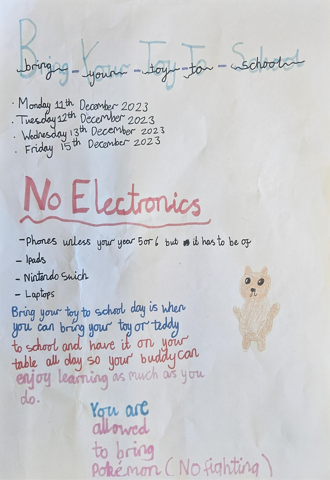 Bring Your Toy To School
bring - your - toy - to - school
· Monday 11th December 2023
· Tuesday 12th December 2023
· Wednesday 13th December 2023
· Friday 15th December 2023
No Electronics
- Phones unless your year 5 or 6 but it has to be of
- Ipads
- Nintendo Swich
- Laptops
Bring your toy to school day is when
you can bring your toy or teddy
to school and have it on your
table all day so your buddy can
enjoy learning as much as you
do.
You are
allowed
to bring
Pokémon (No fighting)